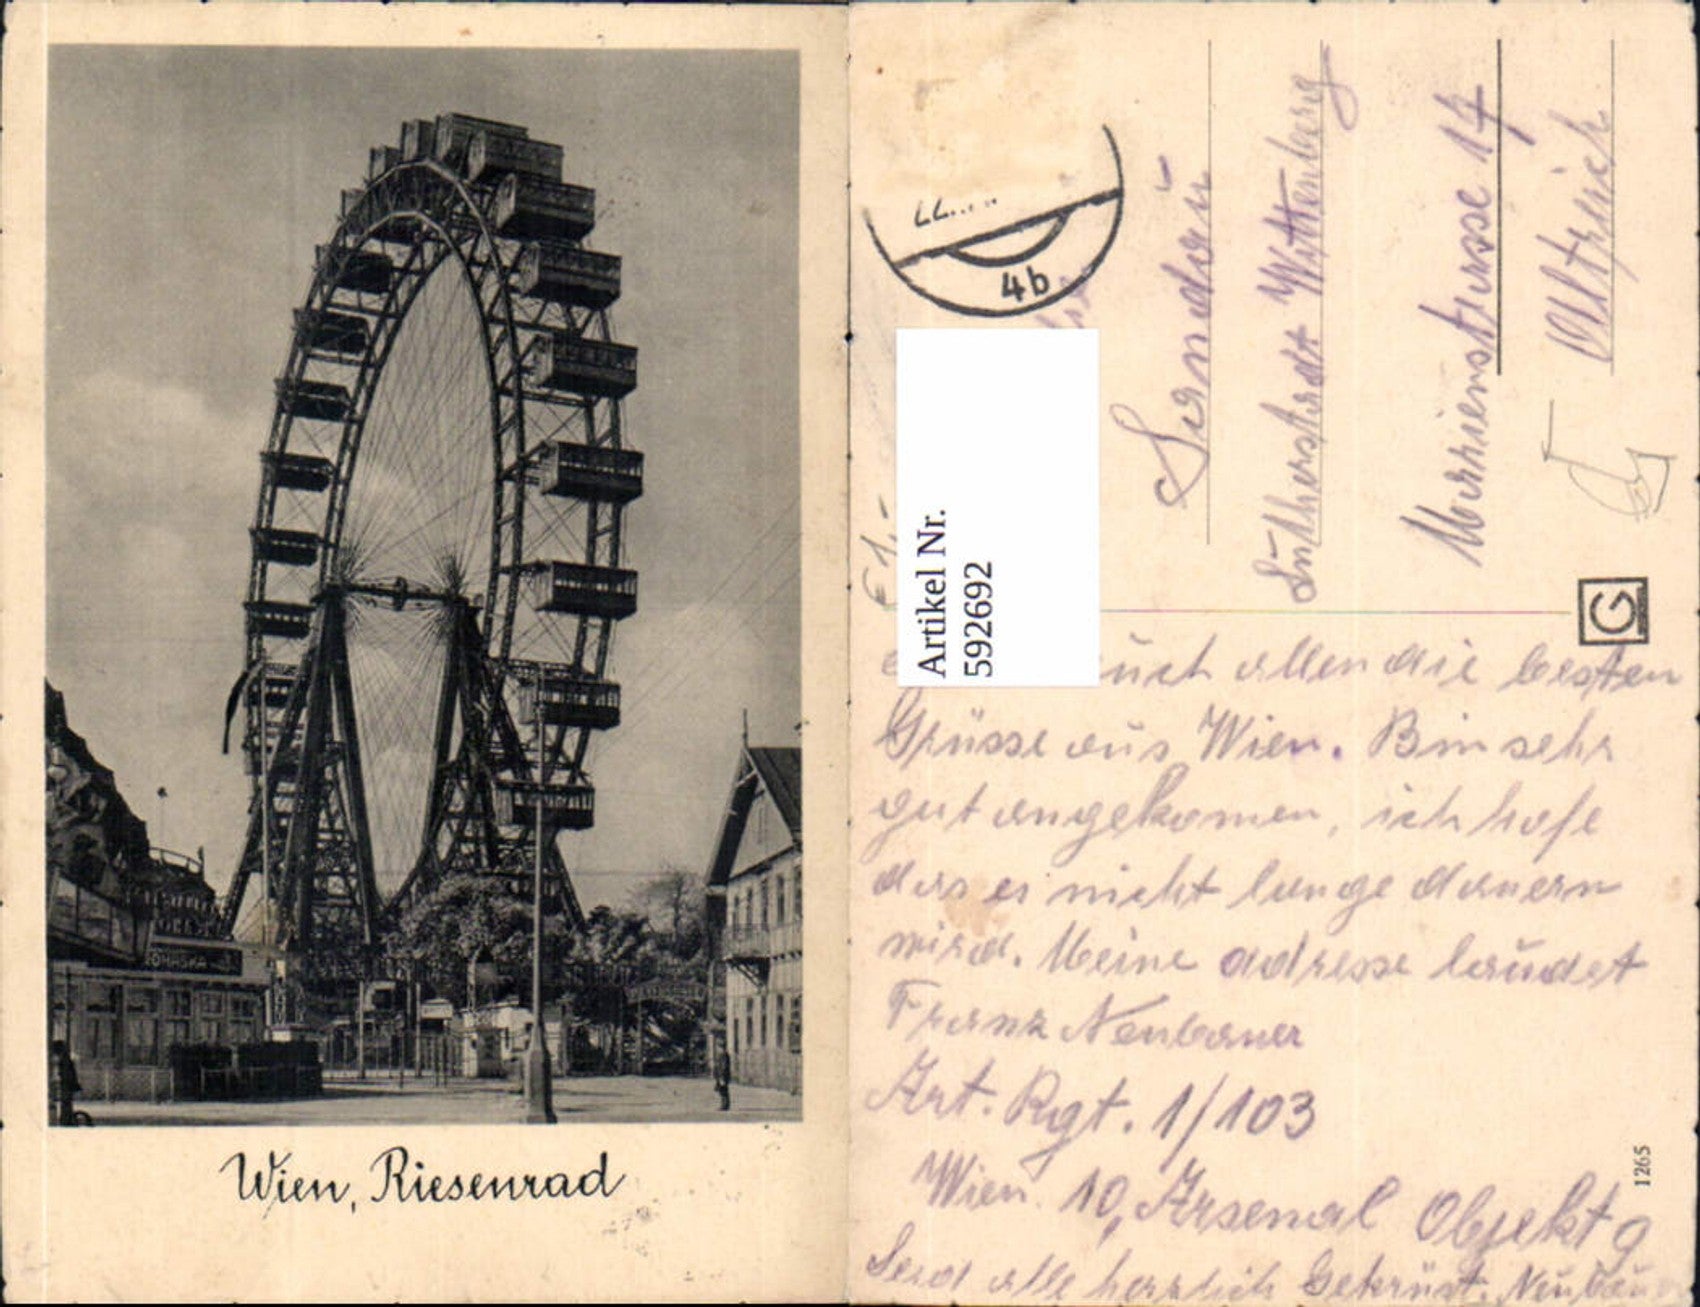 Wien, Riesenrad
4b
Artikel Nr.
592692
Lutherstadt Wittenberg
17
G
allen die besten
Grüsse aus Wien. Bin sehr
gut angekomen, ich hofe
das es nicht lange dauern
wird. Meine adresse laudet
Franz Neubauer
Art. Rgt. 1/103
Wien 10, Arsenal Objekt 9
Seid alle herzlich Gekrüst.
1265